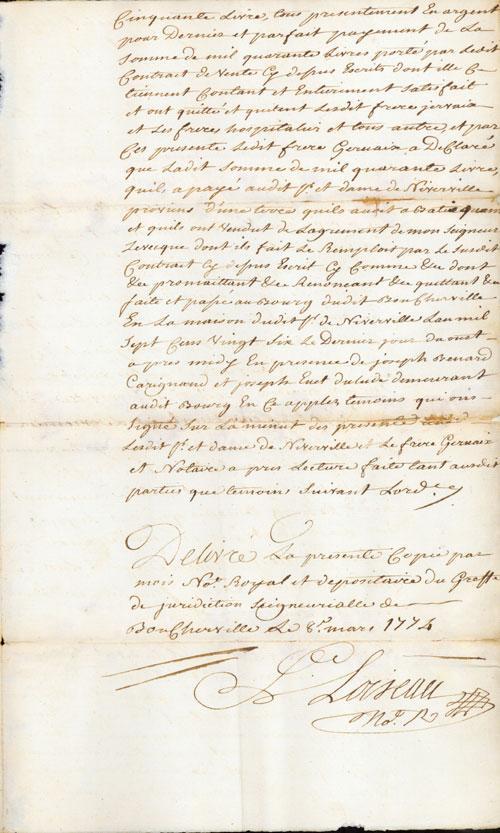 Cinquante Livre, tous presentement En argent
pour Dernier et parfait payement de La
Somme de mil quarante Livres porté par Ledit
Contract de Vente Cy depus Escrits dont ille Ce
tiennent Contant et Entierement Satisfait
et ont quitté et quitent Lesdit frere jervais
et Les freres hospitalier et tous autre, et par
Ces presente Ledit frere Gervaix a De Claré
que Ladit Somme de mil quarante Livre,
quils a payé audit Sr. et dame de Niverville
proviens d'une terre quils avoit a Batis quan
et quils ont Vendut de Lagrement de mon Seigneur
Leveque dont ils fait Le Remploit par Le Susdit
Contract Cy depus Escrit Cy Comme &c dont
&c promaittant &c Renoncant &c quittant &c
faite et passé au Bourg dudit Bon Cherville
En La maison dudit Sr. de Niverville Lan mil
Sept Cens Vingt Six Le Dernier jour daoust
apres midy En presence de joseph Benard
Carignand et joseph Huet dulude demeurant
audit Bourg En Ce appler temoins qui ons
Signé Sur La menut des presente
Lesdit Sr. et dame de Niverville et Le frere Gervaix
et Notaire a pres Lecture faite tant ausdit
parties que temoins Suivant Lord.ce
Delivré La presente Copie par
mois Nore. Royal et depositaire du Greffe
de juridiction Seigneurialle de
Bon Cherville Le 8e. mars 1774
Loiseau
Not. R